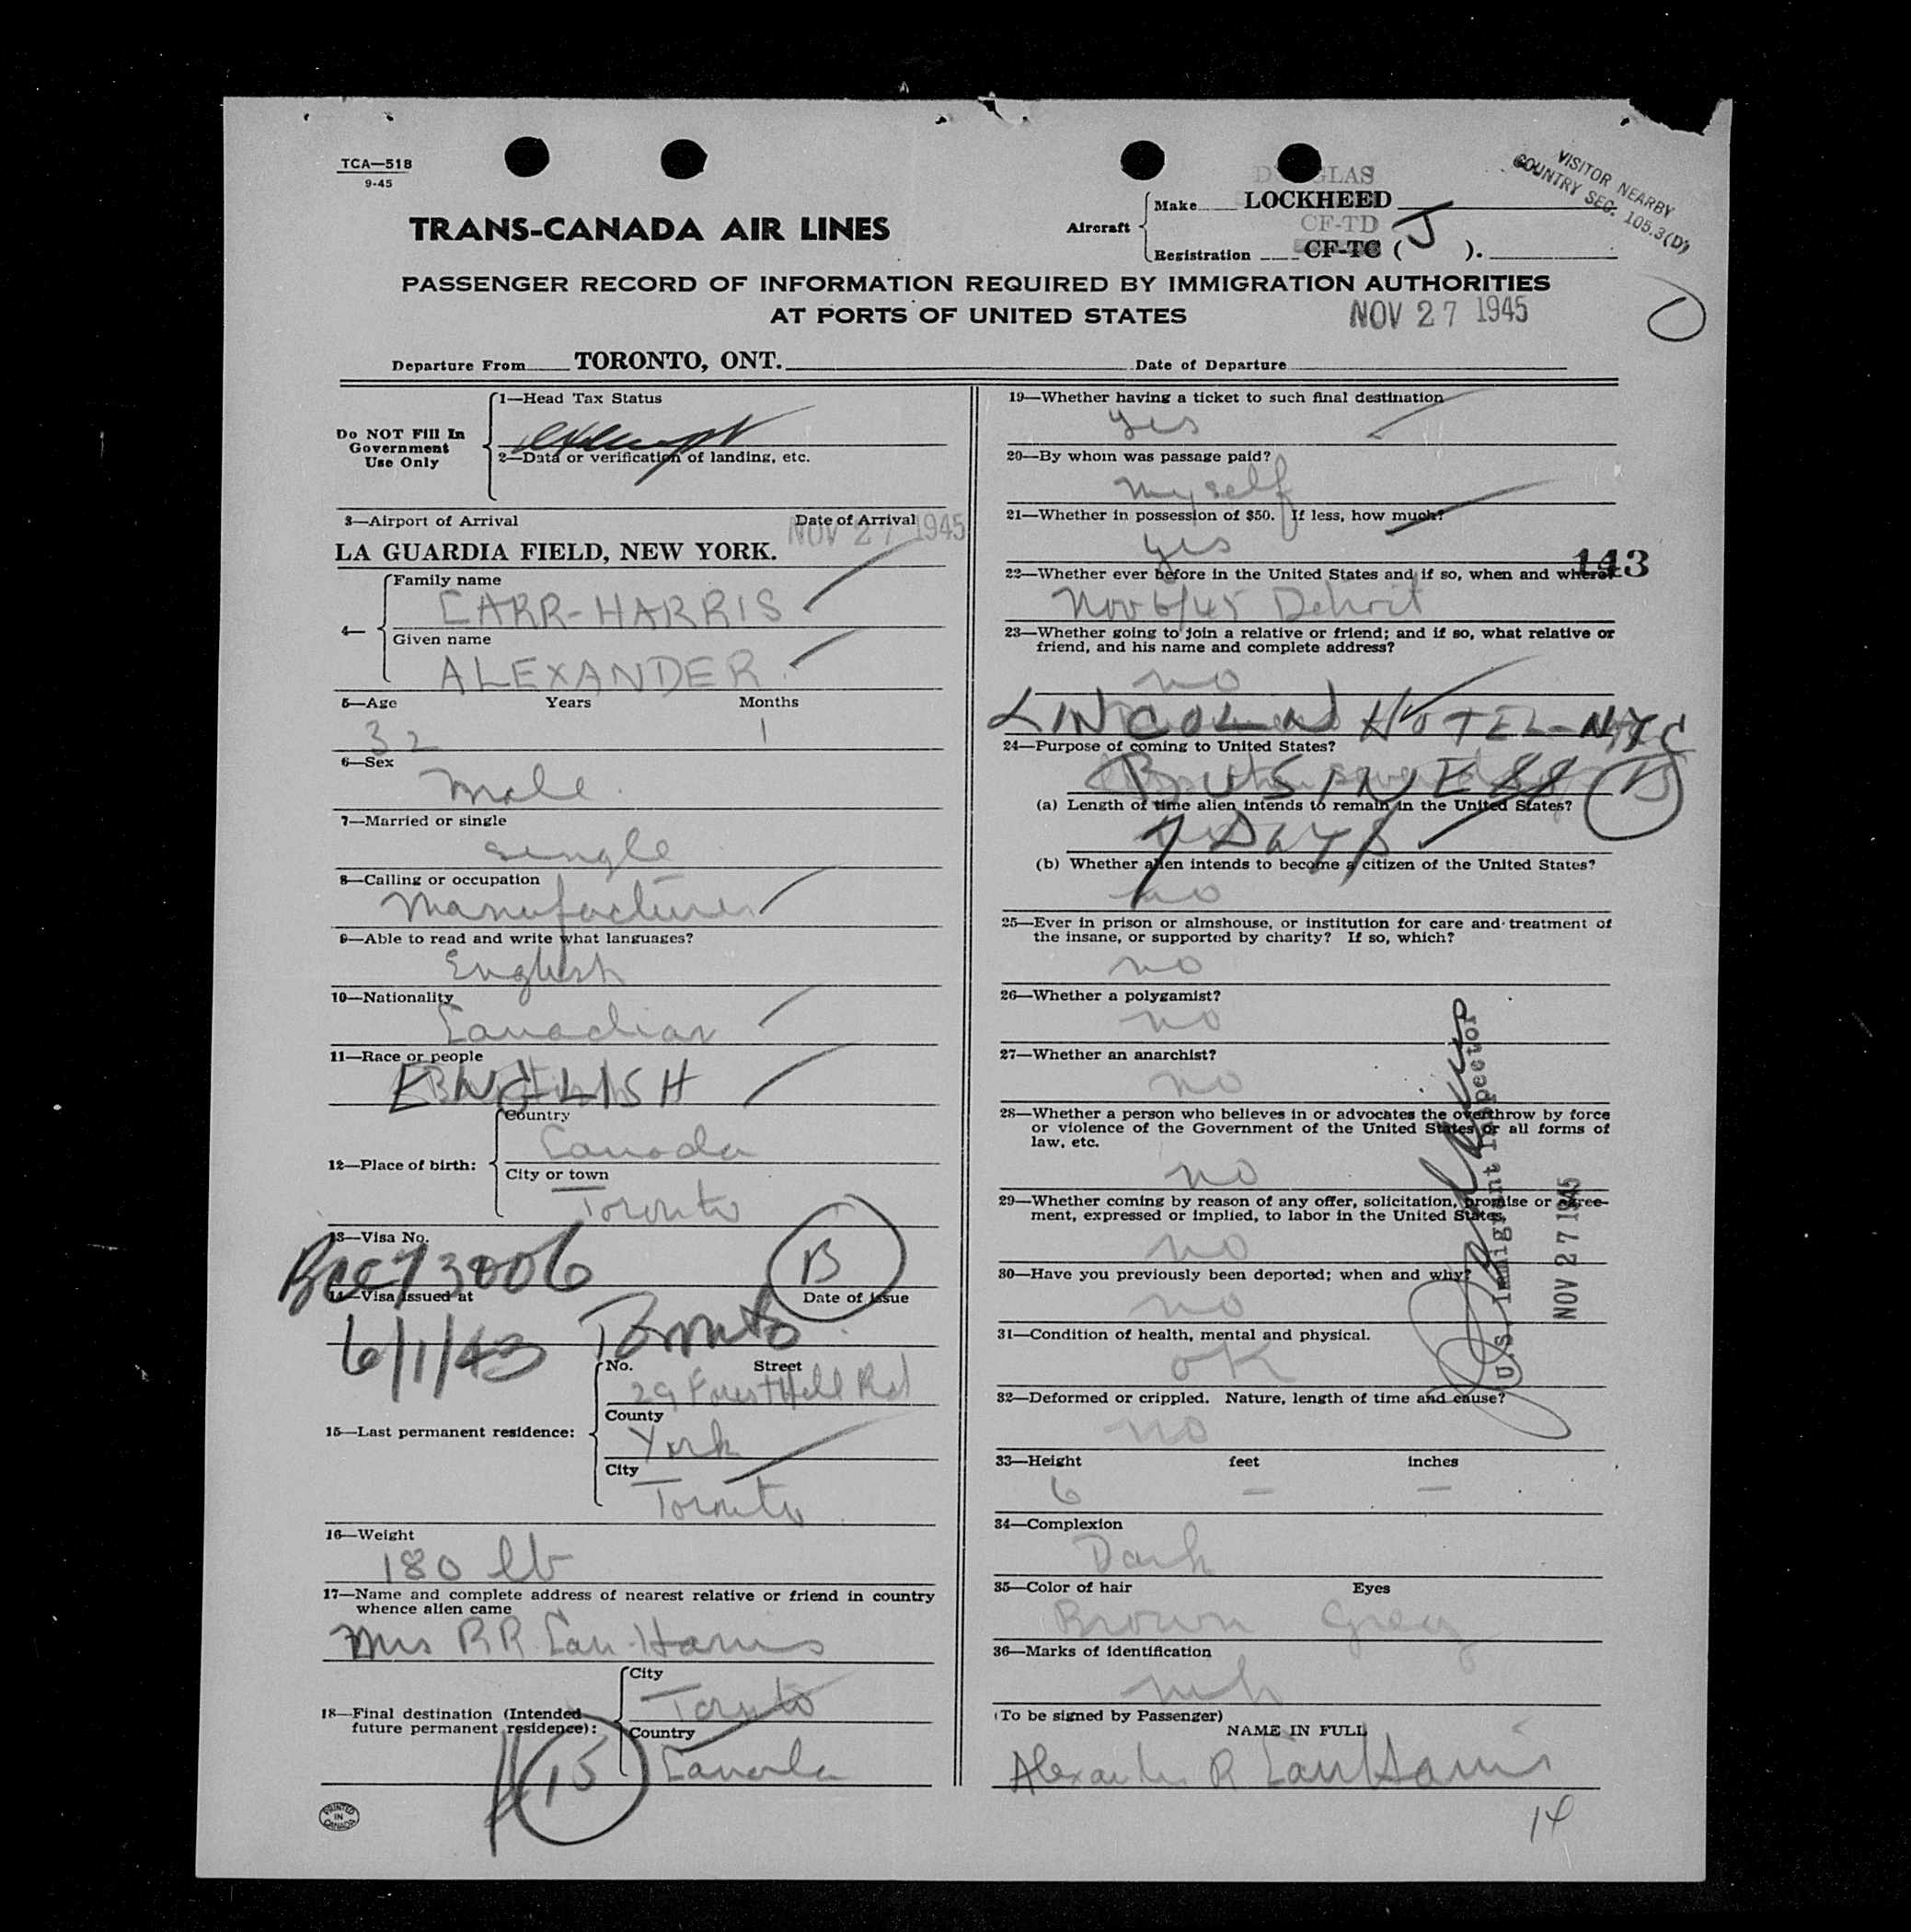 TCA—518
9-45
VISITOR NEARBY
COUNTRY SEC. 105.3(D)
DOUGLAS
Aircraft
Make LOCKHEED
CF-TD
Registration CF-TC ( J ).
TRANS-CANADA AIR LINES
PASSENGER RECORD OF INFORMATION REQUIRED BY IMMIGRATION AUTHORITIES
AT PORTS OF UNITED STATES
NOV 27 1945
Departure From TORONTO, ONT. Date of Departure
Do NOT Fill In
Government
Use Only
1—Head Tax Status
exempt
2—Data or verification of landing, etc.
3—Airport of Arrival Date of Arrival
NOV 27 1945
LA GUARDIA FIELD, NEW YORK.
4—
Family name
CARR-HARRIS
Given name
ALEXANDER
5—Age Years Months
32 1
6—Sex
Male
7—Married or single
single
8—Calling or occupation
Manufacturer
9—Able to read and write what languages?
English
10—Nationality
Canadian
11—Race or people
ENGLISH
12—Place of birth:
Country
Canada
City or town
Toronto
13—Visa No.
BCC73006
B
14—Visa issued at Date of issue
6/1/43 Toronto
15—Last permanent residence:
No. Street
29 Forest Hill Rd
County
York
City
Toronto
16—Weight
180 lb
17—Name and complete address of nearest relative or friend in country
whence alien came
Mrs R R Carr-Harris
18—Final destination (Intended
future permanent residence):
City
Toronto
Country
Canada
15
PRINTED
IN
CANADA
19—Whether having a ticket to such final destination
yes
20—By whom was passage paid?
myself
21—Whether in possession of $50. If less, how much?
yes
143
22—Whether ever before in the United States and if so, when and where?
Nov 6/45 Detroit
23—Whether going to join a relative or friend; and if so, what relative or
friend, and his name and complete address?
no
LINCOLN HOTEL-NYC
24—Purpose of coming to United States?
BUSINESS
B
(a) Length of time alien intends to remain in the United States?
7 DAYS
(b) Whether alien intends to become a citizen of the United States?
no
25—Ever in prison or almshouse, or institution for care and treatment of
the insane, or supported by charity? If so, which?
no
26—Whether a polygamist?
no
27—Whether an anarchist?
no
28—Whether a person who believes in or advocates the overthrow by force
or violence of the Government of the United States or all forms of
law, etc.
no
29—Whether coming by reason of any offer, solicitation, promise or agree-
ment, expressed or implied, to labor in the United States,
no
30—Have you previously been deported; when and why?
no
31—Condition of health, mental and physical.
OK
32—Deformed or crippled. Nature, length of time and cause?
no
33—Height feet inches
6 — —
34—Complexion
Dark
35—Color of hair Eyes
Brown Grey
36—Marks of identification
(To be signed by Passenger)
NAME IN FULL
Alexander R Carr Harris
14
U.S. Immigrant Inspector
NOV 27 1945